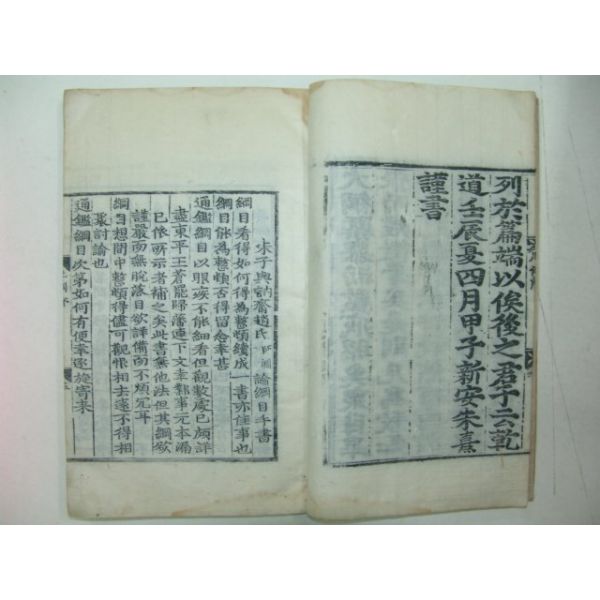 列於篇端以俟後之君子云乾
道壬辰夏四月甲子新安朱熹
謹書
朱子與訥齋趙氏 論綱目手書
綱目看得如何得爲整頓續成一書亦佳事也
綱目能爲整頓否得留念幸甚
通鑑綱目以眼疾不能細看但觀數處已頗詳
盡東平王蒼罷歸藩連下文幸
已依所示者補之矣此書無他法但其綱欲
謹嚴而無脫落目欲詳備而不煩冗耳
綱目想閒中整頓得儘可觀恨相去遠不得相
聚討論也
通鑑綱目次第如何有便幸逐旋寄來